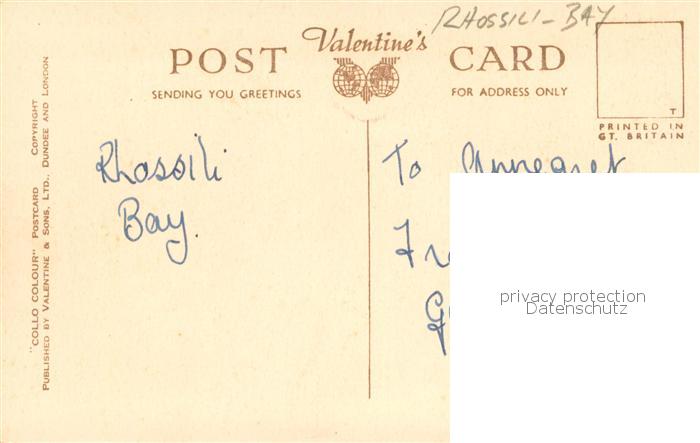 RHOSSILI-BAY
Valentine's
POST CARD
SENDING YOU GREETINGS
FOR ADDRESS ONLY
T
PRINTED IN
GT. BRITAIN
"COLLO COLOUR" POSTCARD COPYRIGHT
PUBLISHED BY VALENTINE & SONS, LTD., DUNDEE AND LONDON
Rhossili
Bay.
To Annegret
privacy protection
Datenschutz